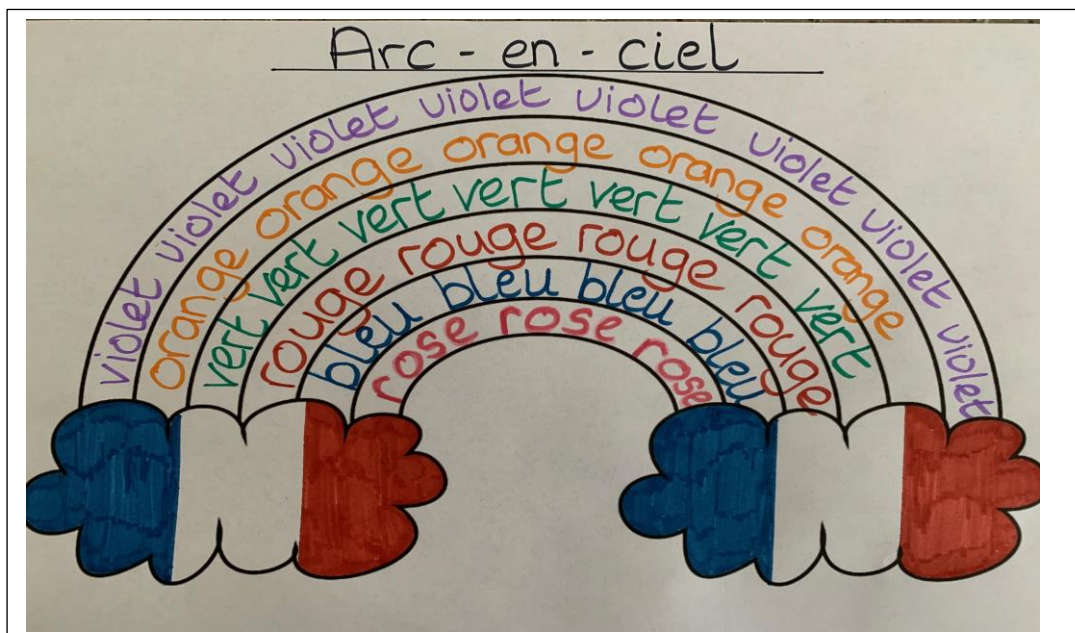 Arc - en - ciel
violet violet violet violet violet violet violet violet
orange orange orange orange orange
vert vert vert vert vert vert vert
rouge rouge rouge rouge
bleu bleu bleu bleu
rose rose rose